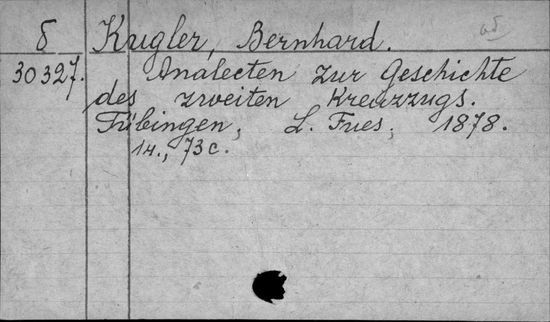 δ Kugler, Bernhard.
30327. Analecten zur Geschichte
des zweiten Kreuzzugs.
Tübingen, L. Fues, 1878.
1л., 73 с.